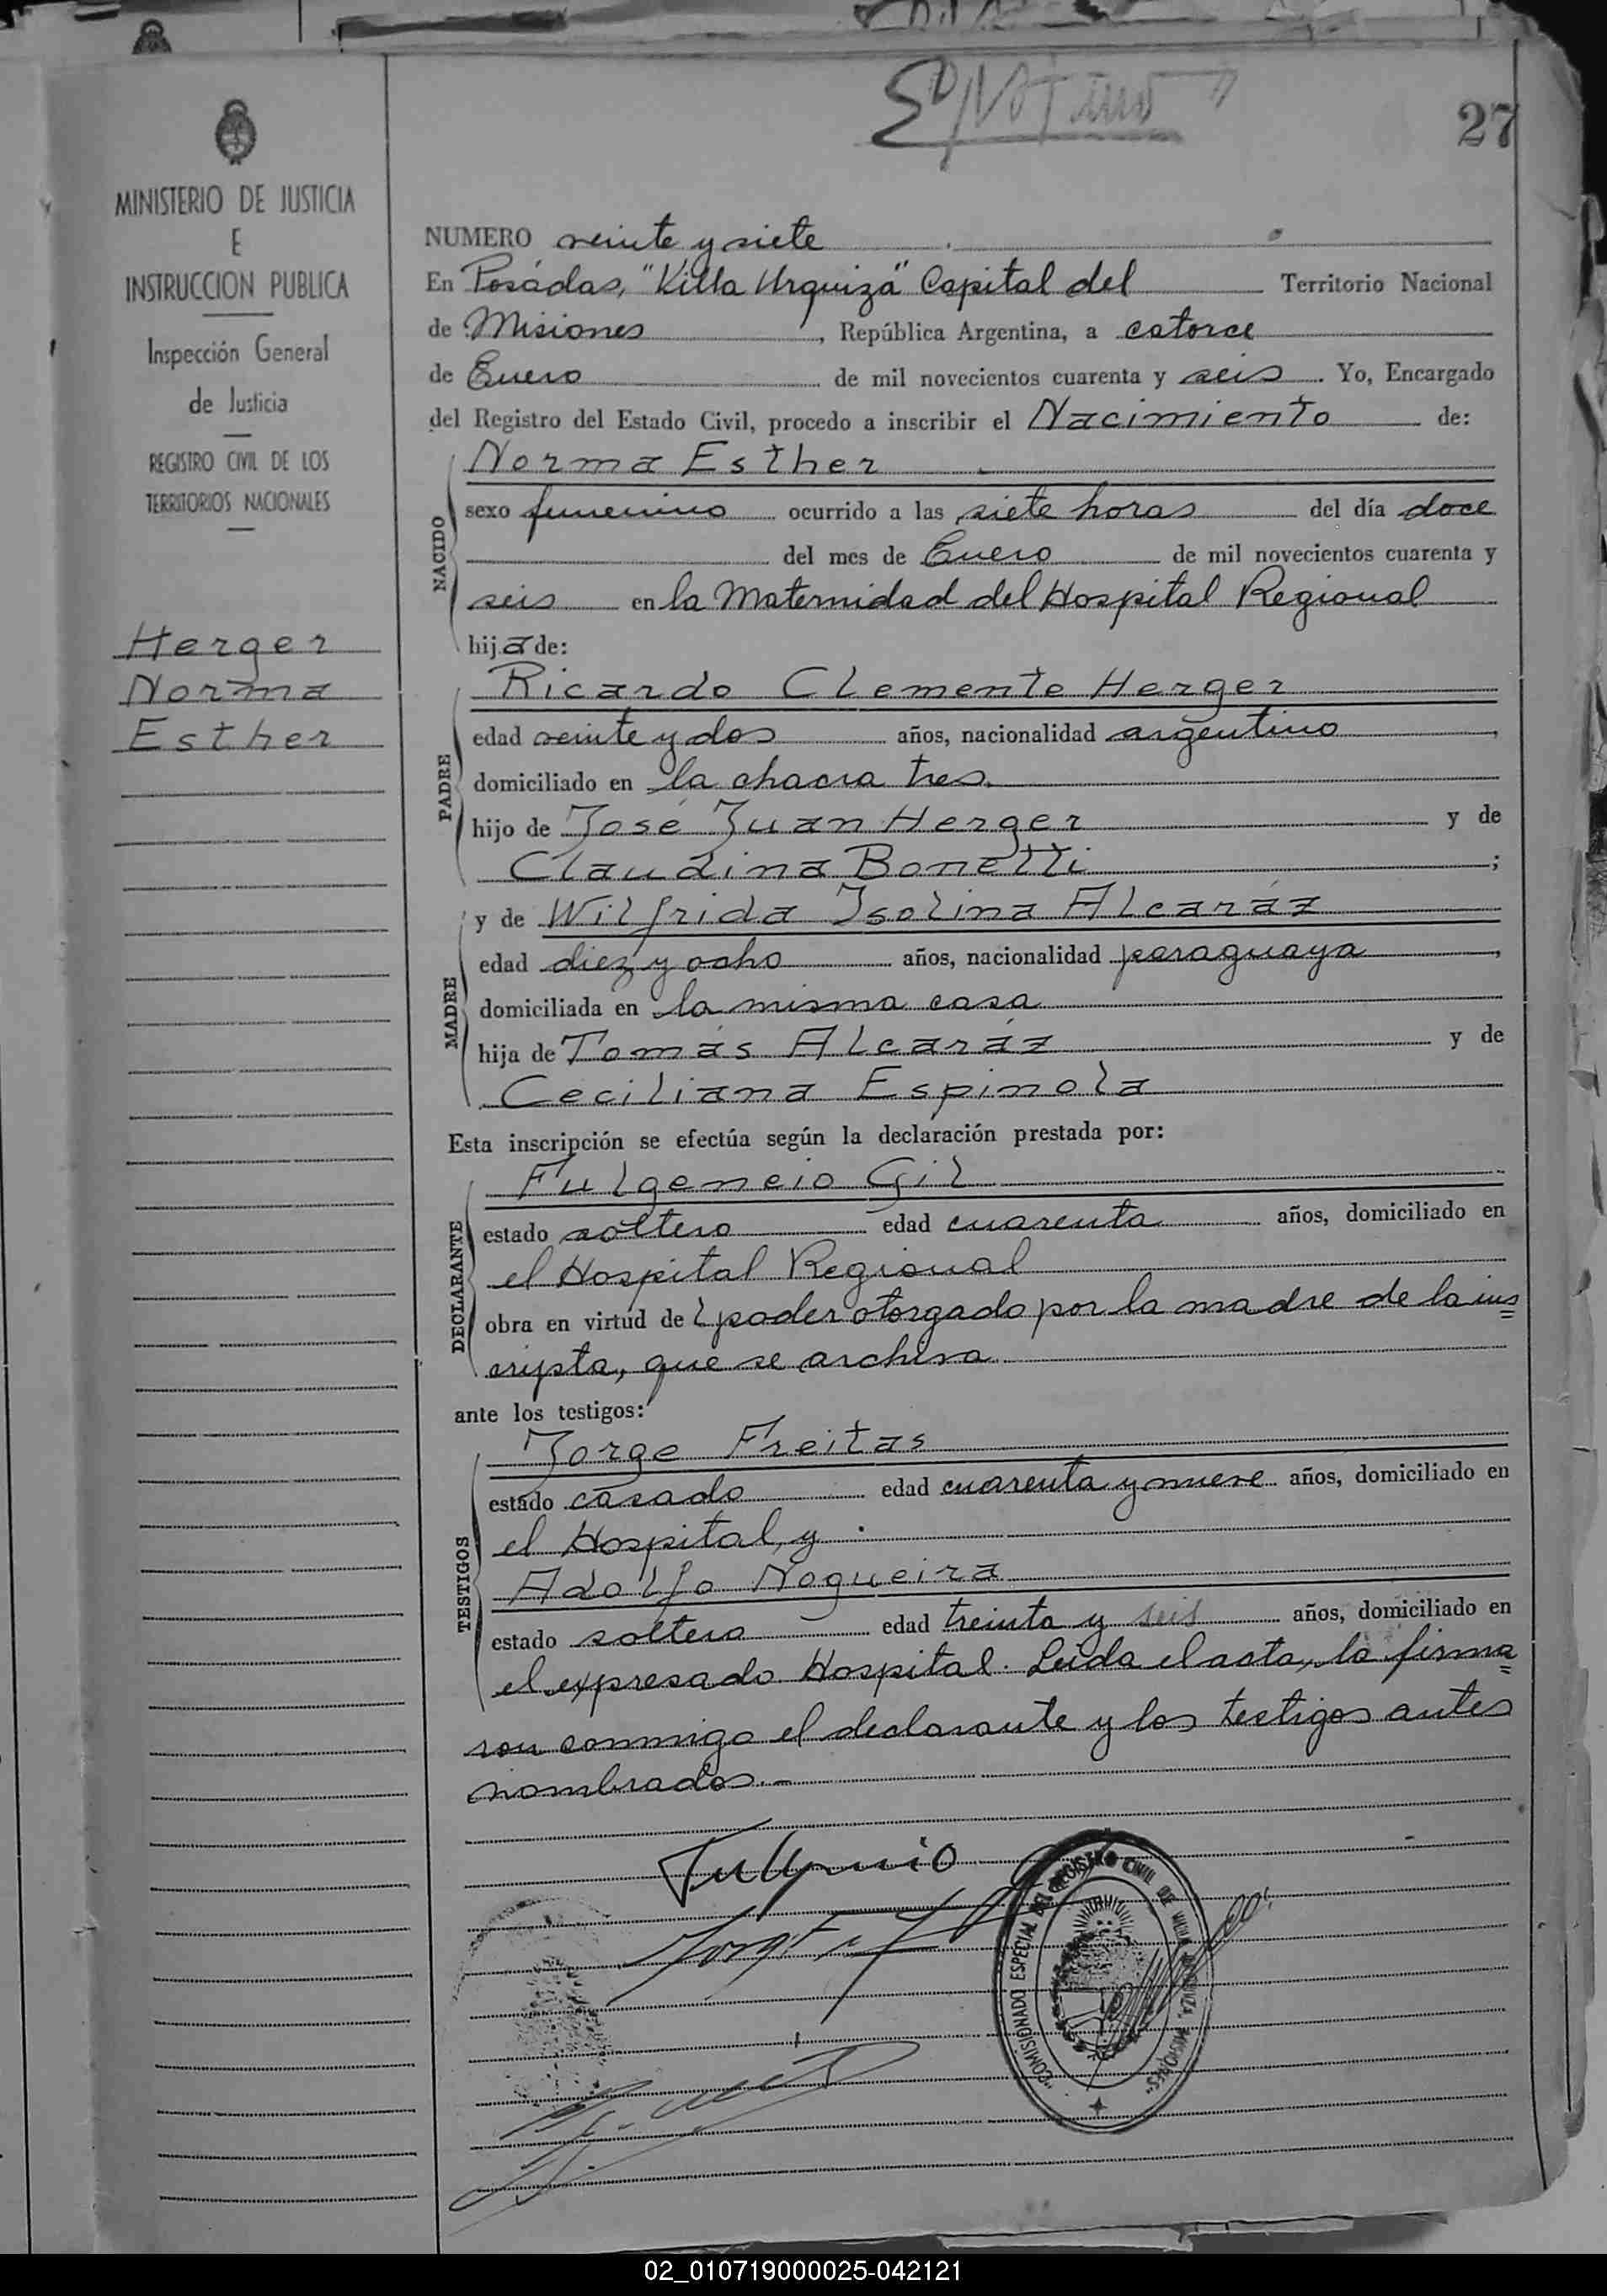 27
MINISTERIO DE JUSTICIA
E
INSTRUCCION PUBLICA
Inspección General
de Justicia
REGISTRO CIVIL DE LOS
TERRITORIOS NACIONALES
Herger
Norma
Esther
NUMERO veinte y siete
En Posadas, "Villa Urquiza" Capital del Territorio Nacional
de Misiones, República Argentina, a catorce
de Enero de mil novecientos cuarenta y seis. Yo, Encargado
del Registro del Estado Civil, procedo a inscribir el Nacimiento de:
NACIDO
Norma Esther
sexo femenino ocurrido a las siete horas del día doce
del mes de Enero de mil novecientos cuarenta y
seis en la Maternidad del Hospital Regional
hija de:
PADRE
Ricardo Clemente Herger
edad veinte y dos años, nacionalidad argentino,
domiciliado en la chacra tres.
hijo de José Juan Herger y de
Claudina Bonetti;
MADRE
y de Wilfrida Isolina Alcaráz
edad diez y ocho años, nacionalidad paraguaya,
domiciliada en la misma casa
hija de Tomás Alcaráz y de
Ceciliana Espinola
Esta inscripción se efectúa según la declaración prestada por:
DECLARANTE
Fulgencio Gil
estado soltero edad cuarenta años, domiciliado en
el Hospital Regional
obra en virtud del poder otorgado por la madre de la ins=
cripta, que se archiva
ante los testigos:
TESTIGOS
Jorge Freitas
estado casado edad cuarenta y nueve años, domiciliado en
el Hospital, y
Adolfo Nogueira
estado soltero edad treinta y seis años, domiciliado en
el expresado Hospital. Leída el acta, la firma=
ron conmigo el declarante y los testigos antes
nombrados.-
"COMISIONADO ESPECIAL DEL REGISTRO CIVIL DE VILLA URQUIZA, MISIONES"
02_010719000025-042121